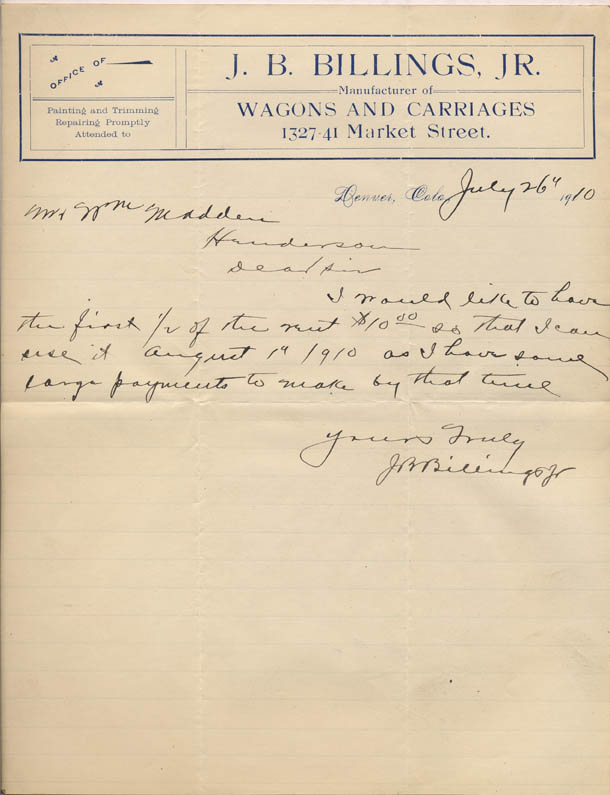 OFFICE OF
Painting and Trimming
Repairing Promptly
Attended to
J. B. BILLINGS, JR.
Manufacturer of
WAGONS AND CARRIAGES
1327-41 Market Street.
Denver, Colo. July 26" 1910
Mr Wm Madden
Henderson
Dear Sir
I would like to have
the first 1/2 of the rent $10 00 so that I can
use it August 1st 1910 as I have some
large payments to make by that time
Yours Truly
J B Billings Jr